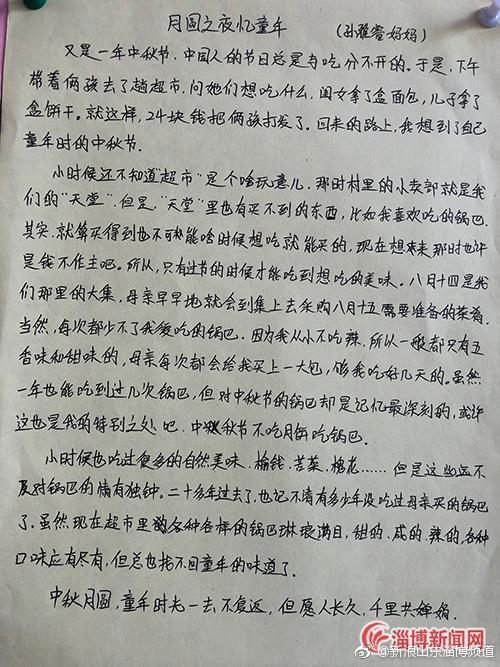 月圆之夜忆童年 (孙雅萱妈妈)
又是一年中秋节,中国人的节日总是与吃分不开的。于是,下午
带着俩孩去了趟超市,问她们想吃什么,闺女拿了盒面包,儿子拿了
盒饼干。就这样,24块钱把俩孩打发了。回来的路上,我想到了自己
童年时的中秋节.
小时候还不知道"超市"是个啥玩意儿,那时村里的小卖部就是我
们的"天堂".但是,"天堂"里也有买不到的东西,比如我喜欢吃的锅巴.
其实,就算买得到也不可能啥时候想吃就能买的,现在想来那时也许
是钱不作主吧。所以,只有过节的时候才能吃到想吃的美味。八月十四是我
们那里的大集,母亲早早地就会到集上去采购八月十五需要准备的菜肴,
当然,每次都少不了我爱吃的锅巴。因为我从小不吃辣,所以一般都只有五
香味和甜味的,母亲每次都会给我买上一大包,够我吃好几天的。虽然
一年也能吃到过几次锅巴,但对中秋节的锅巴却是记忆最深刻的,或许
这也是我的特别之处吧.中秋节不吃月饼吃锅巴。
小时候也吃过很多的自然美味,榆钱、苦菜、槐花……但是这些远不
及对锅巴的情有独钟。二十多年过去了,也记不清有多少年没吃过母亲买的锅巴
了.虽然现在超市里的各种各样的锅巴琳琅满目,甜的、咸的、辣的,各种
口味应有尽有,但总也找不回童年的味道了.
中秋月圆,童年时光一去不复返,但愿人长久,千里共婵娟.
淄博新闻网
@新浪山东淄博频道